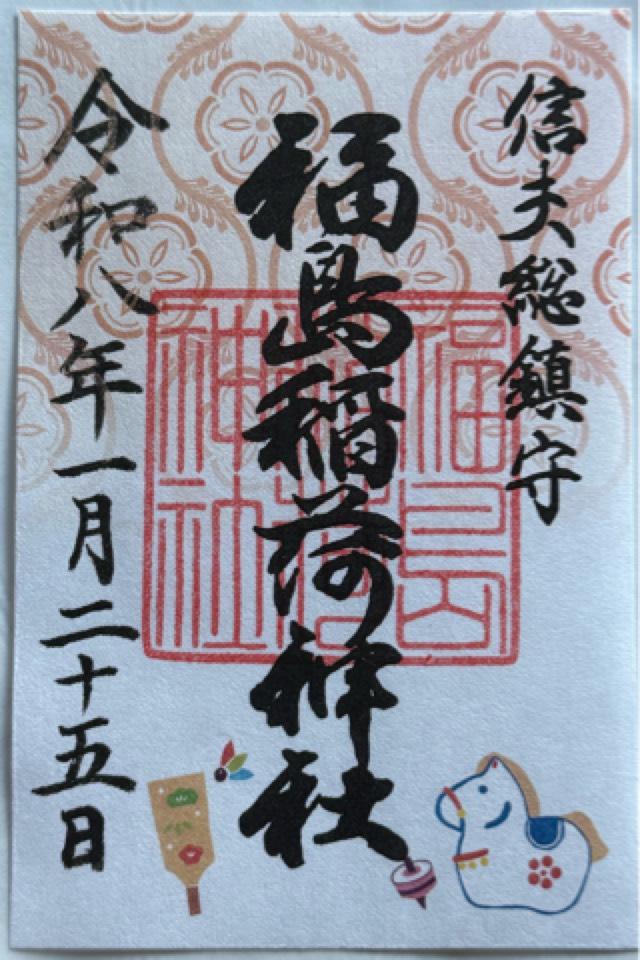 信夫総鎮守
福島稲荷神社
令和八年一月二十五日
福島稲荷神社